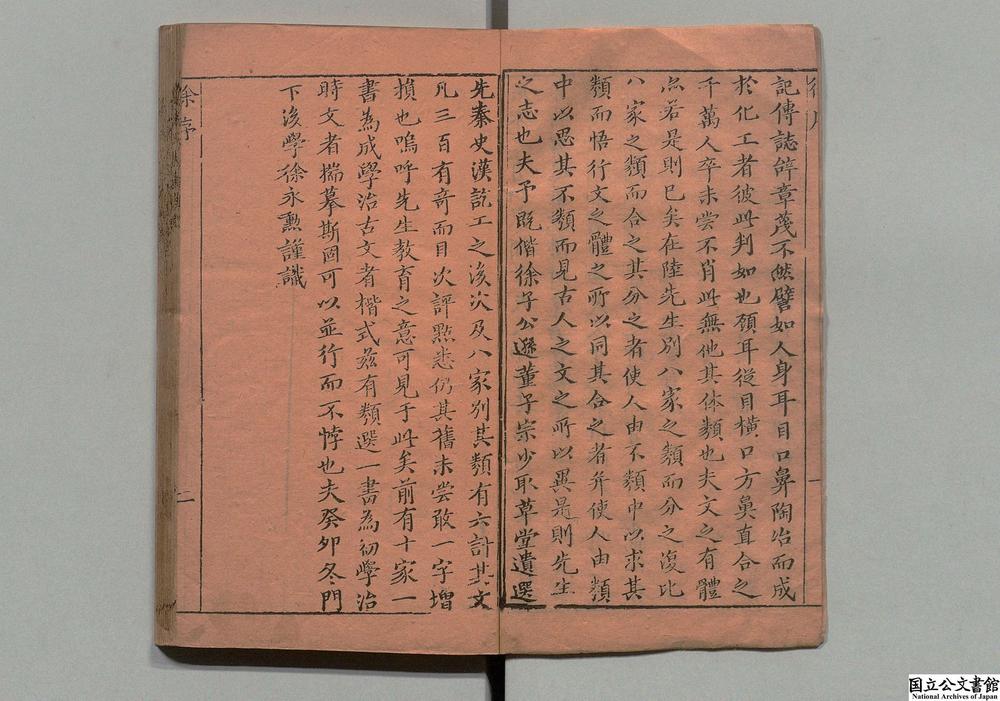 記傳誌辭章茂不然譬如人身耳目口鼻陶冶而成
於化工者彼此判如也顧耳從目橫口方鼻直合之
千萬人卒未嘗不肖此無他其体類也夫文之有體
亦若是則已矣在陸先生別八家之類而分之復比
八家之類而合之其分之者使人由不類中以求其
類而悟行文之體之所以同其合之者并使人由類
中以思其不類而見古人之文之所以異是則先生
之志也夫予既偕徐子公遜董子宗少取草堂遺選
先秦史漢訖工之後次及八家別其類有六計其文
凡三百有奇而目次評點悉仍其舊未嘗敢一字增
損也嗚呼先生教育之意可見于此矣前有十家一
書為成學治古文者楷式茲有類選一書為初學治
時文者揣摹斯固可以並行而不悖也夫癸卯冬門
下後學徐永勳謹識
徐序
二
国立公文書館
National Archives of Japan